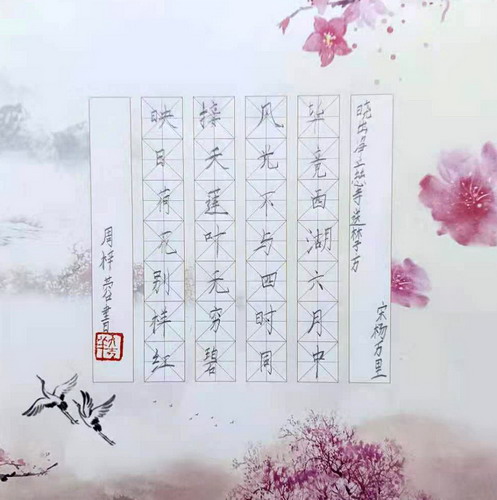 晓出净慈寺送林子方
宋杨万里
毕竟西湖六月中
风光不与四时同
接天莲叶无穷碧
映日荷花别样红
周梓萱書